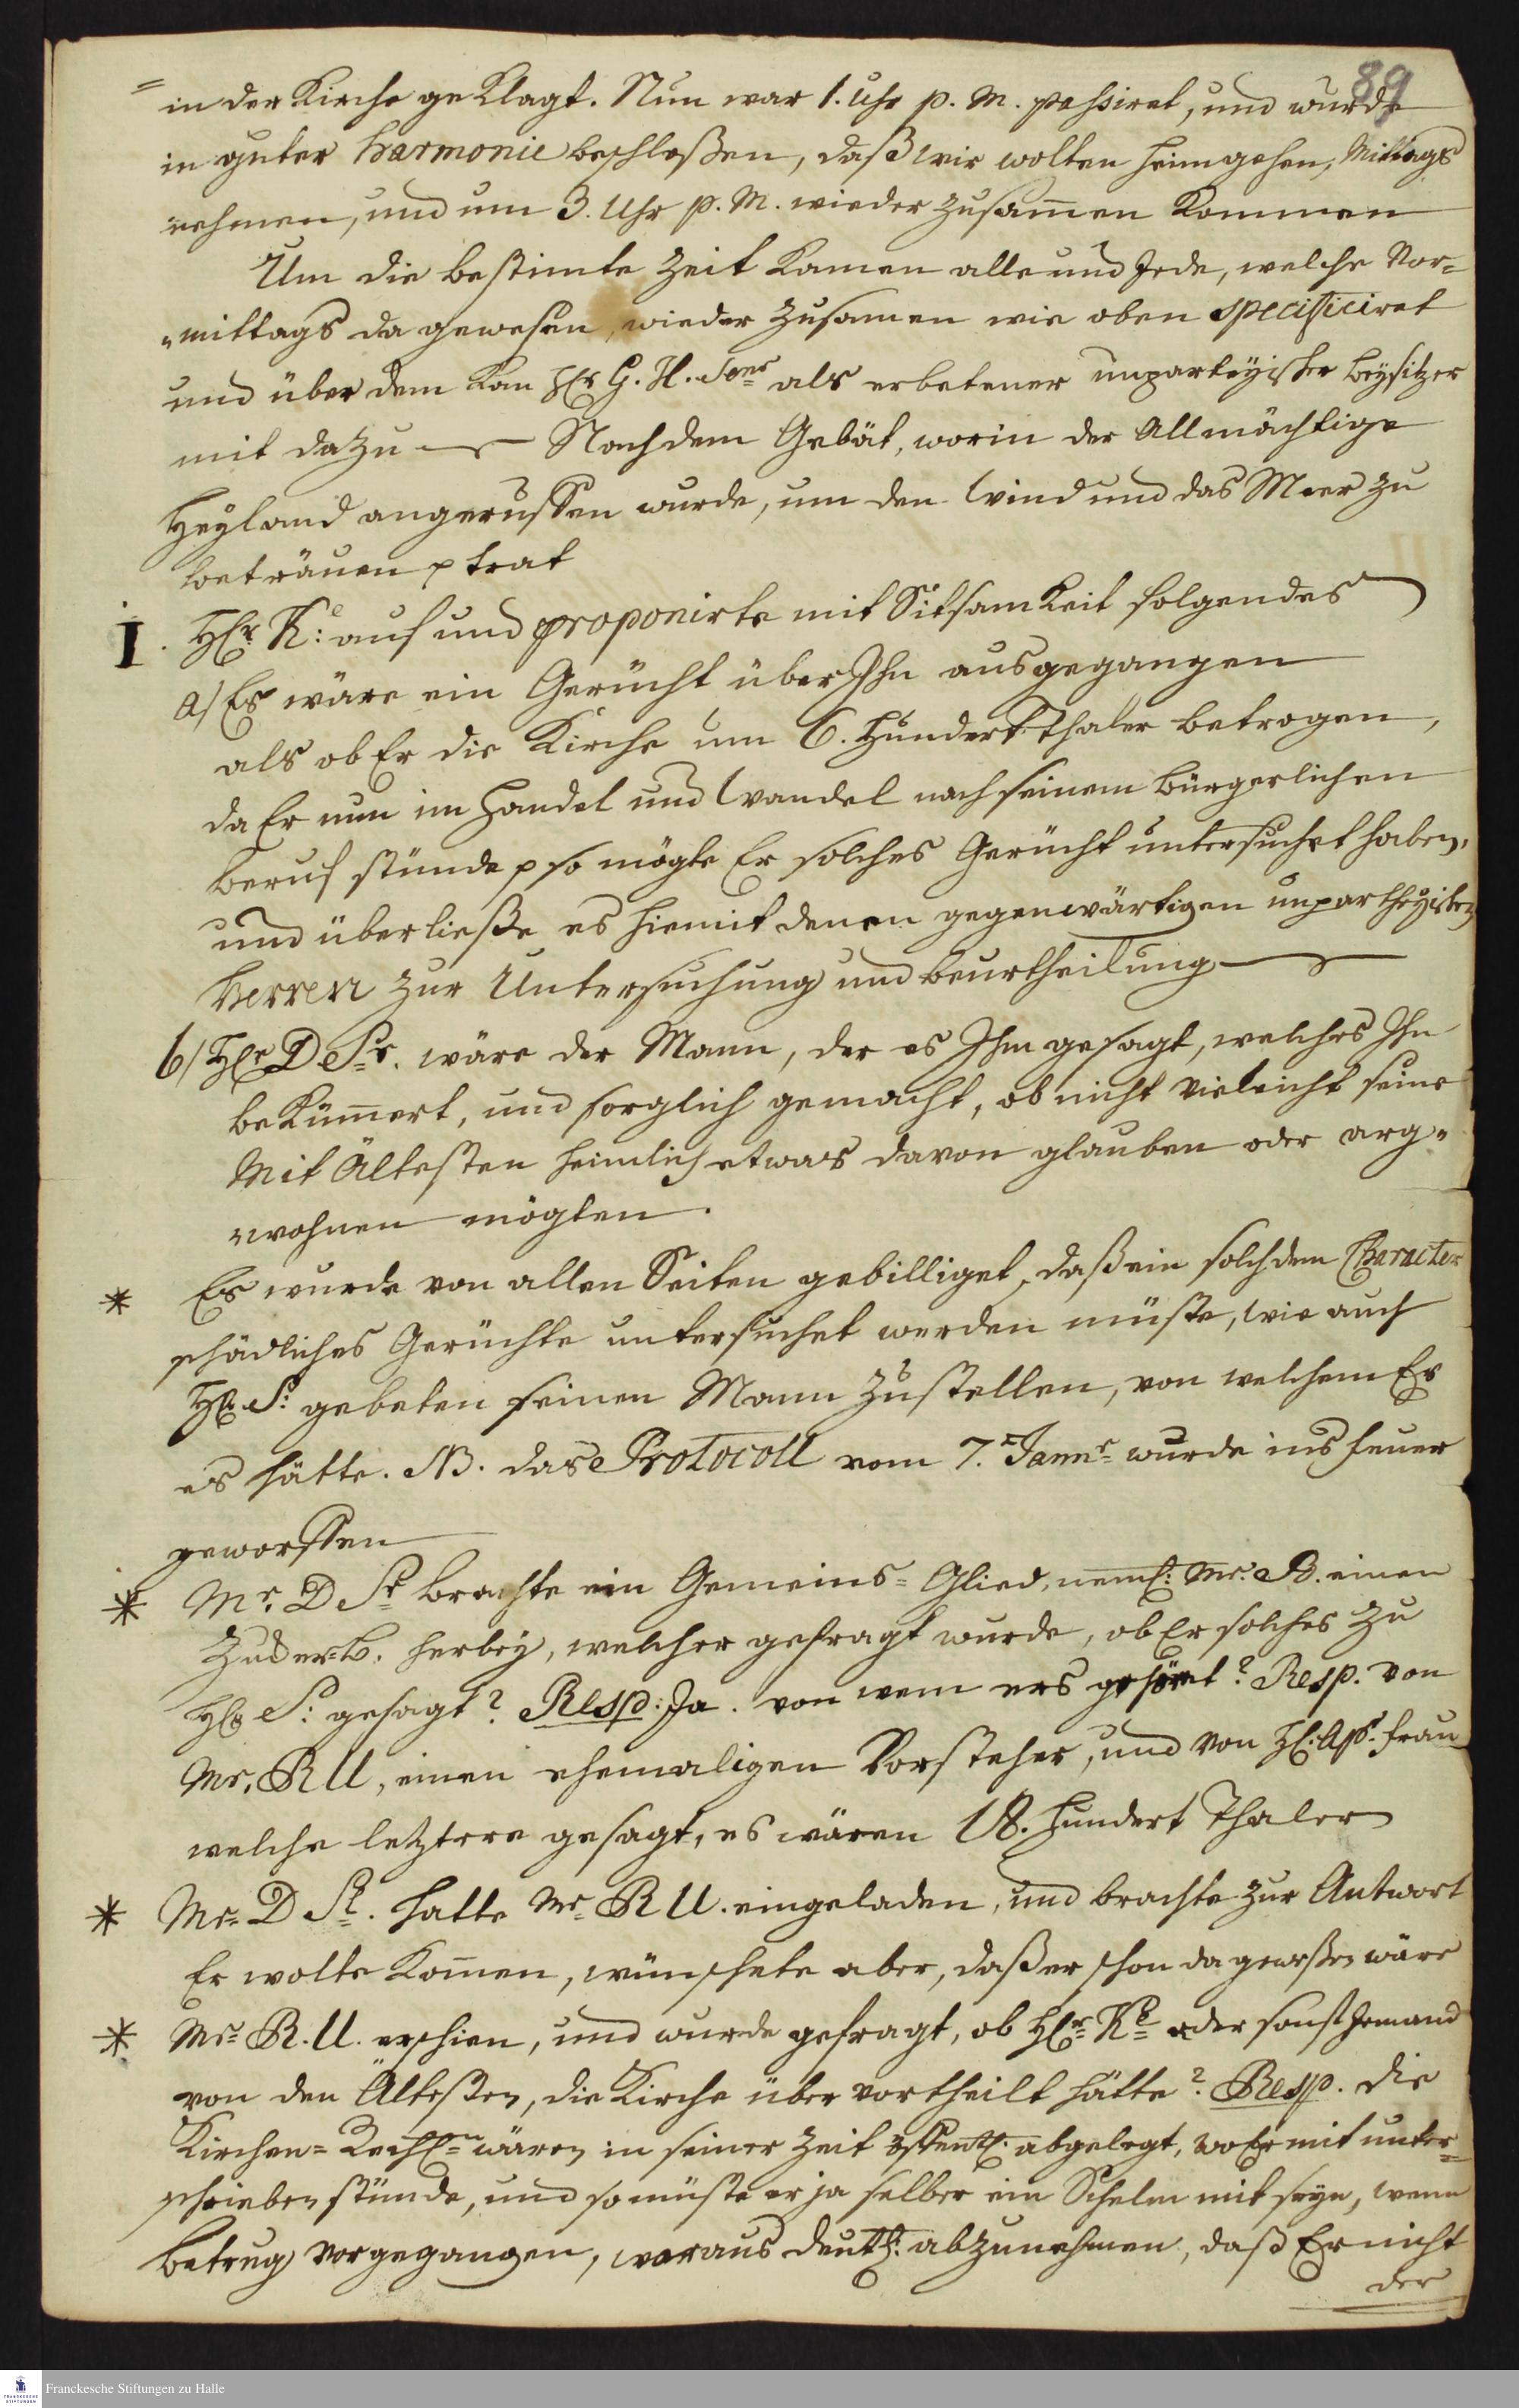 89
= in der Kirche geklagt. Nun war 1. Uhr p. M. passiret, und wurde
in guter Harmonie beschloßen, daß wir wolten heimgehen, Mittags
nehmen, und um 3. Uhr p. M. wieder zusam̄en kommen
Um die bestimte Zeit kamen alle und Jede, welche Vor=
mittags da gewesen, wieder zusamen wie oben specificiret
und über dem kam H. G. H. Senr als erbetener unparteyischer Beysitzer
mit dazu — Nach dem Gebät, worin der Allmächtige
Heyland angeruffen wurde, um den Wind und das Meer zu
beträuen p trat
I. H. K: auf und proponirte mit Sitsamkeit folgendes
a) Es wäre ein Gerücht über Ihn ausgegangen
als ob Er die Kirche um 6. Hundert Thaler betrogen,
da Er nun im Handel und Wandel nach seinem bürgerlichen
Beruf stünde p so mögte Er solches Gerücht untersuchet haben,
und überließe es hiemit denen gegenwärtigen unpartheyischen
Herren zur Untersuchung und Beurtheilung —
b) Hr D Sr. wäre der Mann, der es Ihm gesagt, welches Ihn
bekümmert, und sorglich gemacht, ob nicht vieleicht seine
Mit Ältesten heimlich etwas davon glauben oder arg=
wohnen mögten.
* Es wurde von allen Seiten gebilliget, daß ein solch dem Character
schädliches Gerüchte untersuchet werden müste, wie auch
H. S: gebeten seinen Mann zustellen, von welchem Er
es hätte. NB. das Protocoll vom 7. Jannr wurde ins Feuer
geworffen
* Mr. D Sr brachte ein Gemeins=Glied, neml: Mr. B. einen
herbey, welcher gefragt wurde, ob Er solches zu
H. S: gesagt? Resp: Ja. von wem ers gehöret? Resp. von
Mr. R U, einen ehemaligen Vorsteher, und von Frau
welche letztere gesagt, es wären 18. Hundert Thaler
* Mr D Sr. hatte Mr R U. eingeladen, und brachte zur Antwort
Er wolte kom̄en, wünschete aber, daß er schon da gewesen wäre
* Mr R. U. erschien, und wurde gefragt, ob Hr K oder sonst Jemand
von den Ältesten, die Kirche über vortheilt hätte? Resp. die
Kirchen=Rechn wären in seiner Zeit öffentl. abgelegt, wo Er mit unter=
schrieben stünde, und so müste er ja selber ein Schelm mit seyn, wenn
Betrug vorgegangen, woraus deutl: abzunehmen, daß Er nicht
der
Franckesche Stiftungen zu Halle